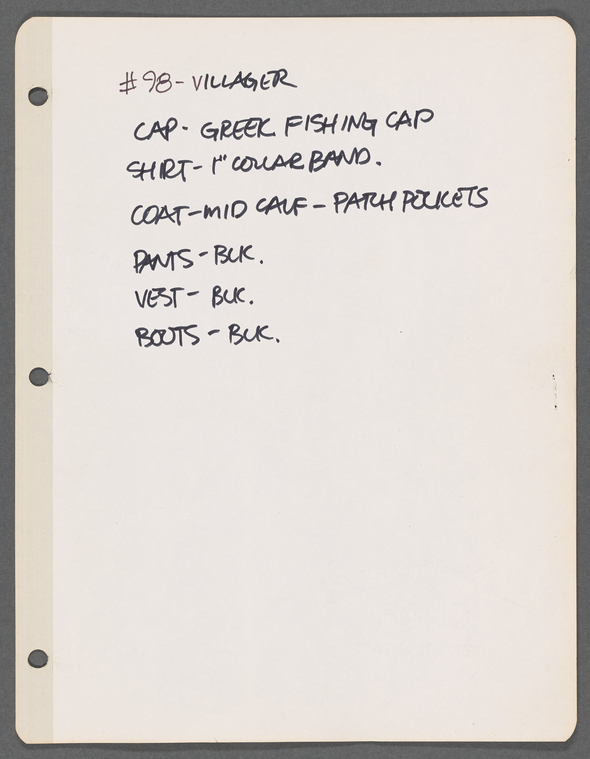 #98- VILLAGER
CAP- GREEK FISHING CAP
SHIRT- 1" COLLAR BAND.
COAT-MID CALF - PATCH POCKETS
PANTS - BLK.
VEST - BLK.
BOOTS - BLK.